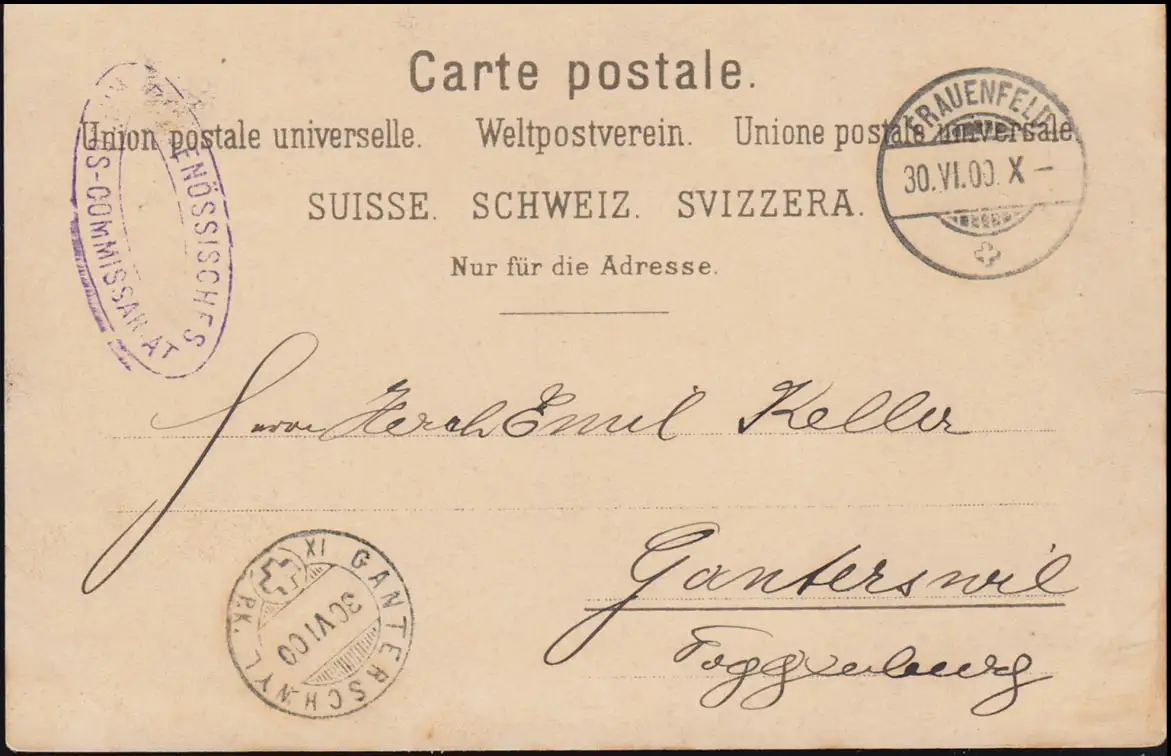 Carte postale.
Union postale universelle. Weltpostverein. Unione postale universale.
SUISSE. SCHWEIZ. SVIZZERA.
Nur für die Adresse.
ENÖSSISCHES
S-COMMISSARIAT
FRAUENFELD
30.VI.00. X –
Herrn Emil Keller
Ganterswil
Toggenburg
GANTERSCHWYL
30 VI 00
XI